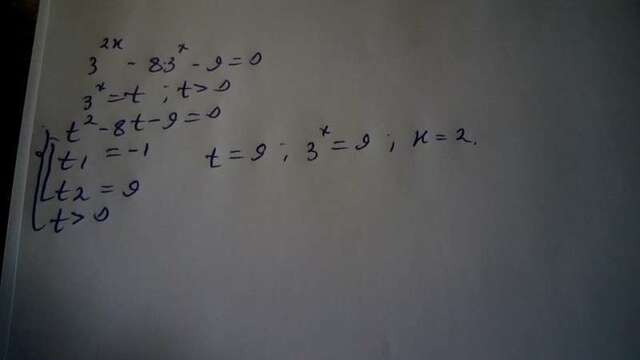 3^2x - 8·3^x - 9 = 0
3^x = t ; t > 0
t^2 - 8t - 9 = 0
t1 = -1
t2 = 9
t > 0
t = 9 ; 3^x = 9 ; x = 2.